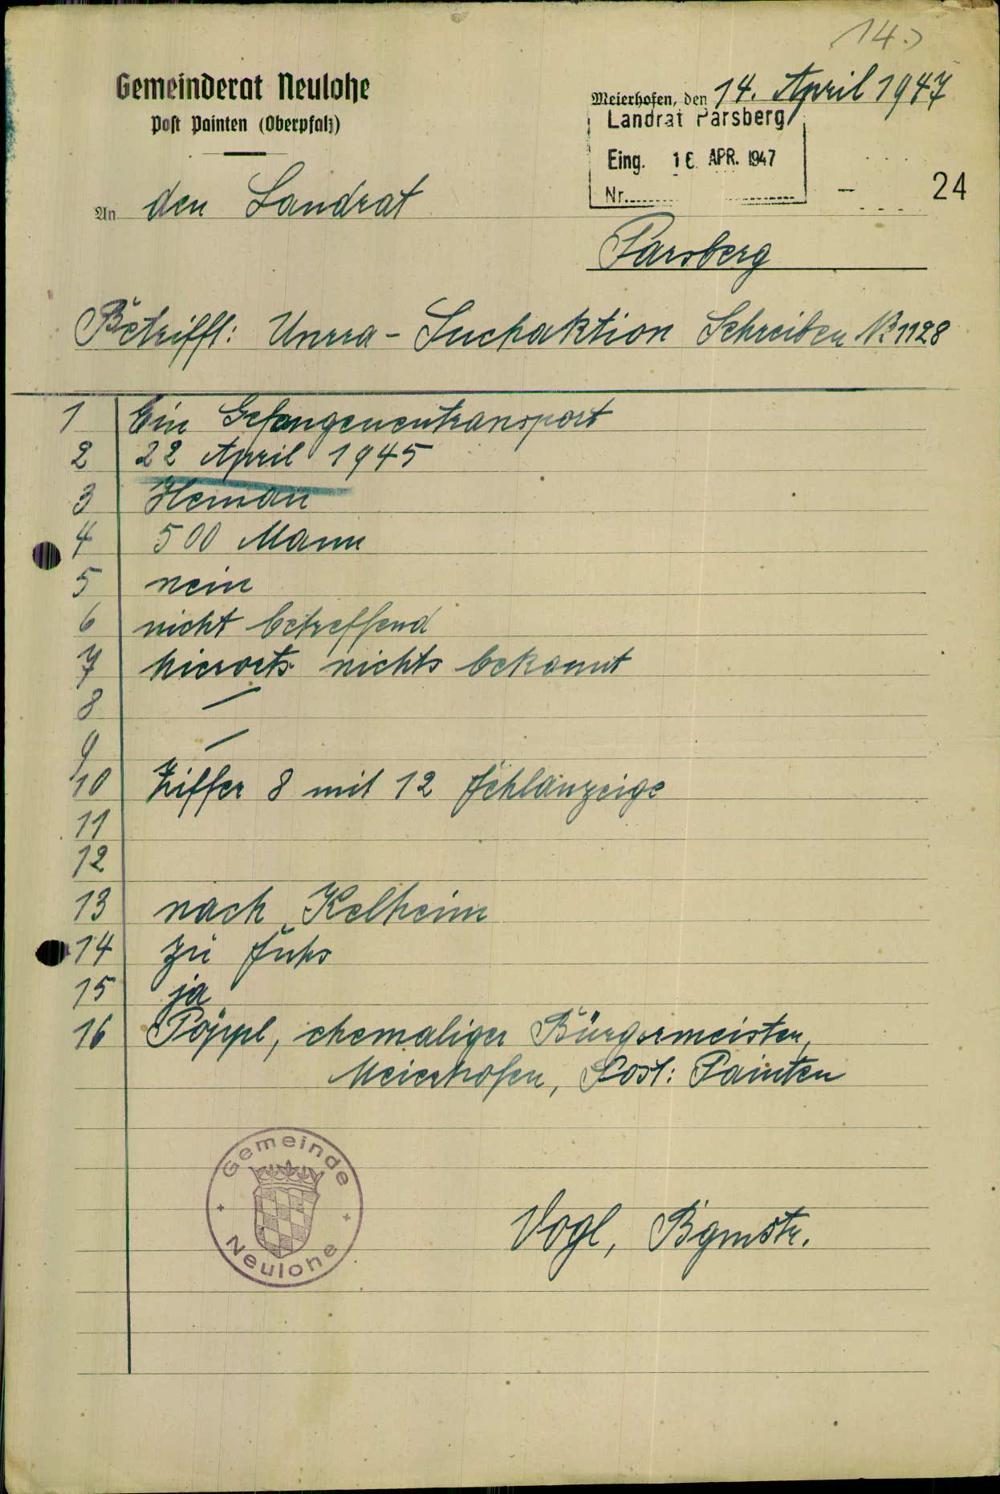 14.)
Gemeinderat Neulohe
Post Painten (Oberpfalz)
Meierhofen, den 14. April 1947
Landrat Parsberg
Eing. 16. APR. 1947
Nr.
24
An den Landrat
Parsberg
Betrifft: Unrra - Suchaktion Schreiben Nº 1128
1 Ein Gefangenentransport
2 22 April 1945
3 Hemau
4 500 Mann
5 nein
6 nicht betreffend
7 hierorts nichts bekannt
8 —
9 —
10 Ziffer 8 mit 12 Fehlanzeige
11
12
13 nach Kelheim
14 zu Fuhs
15 ja
16 Pöppl, ehemaliger Bürgermeister,
Meierhofen, Post: Painten
Gemeinde
Neulohe
Vogl, Bgmstr.